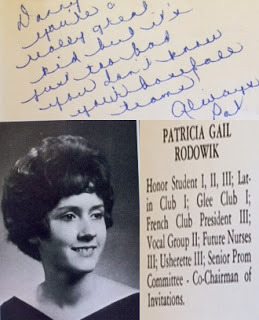 Danny
you're a
really great
kid but it's
just too bad
you don't know
your baseball
teams!
Always
Pat
PATRICIA GAIL
RODOWIK
Honor Student I, II, III; Lat-
in Club I; Glee Club I;
French Club President III;
Vocal Group II; Future Nurses
III; Usherette III; Senior Prom
Committee - Co-Chairman of
Invitations.